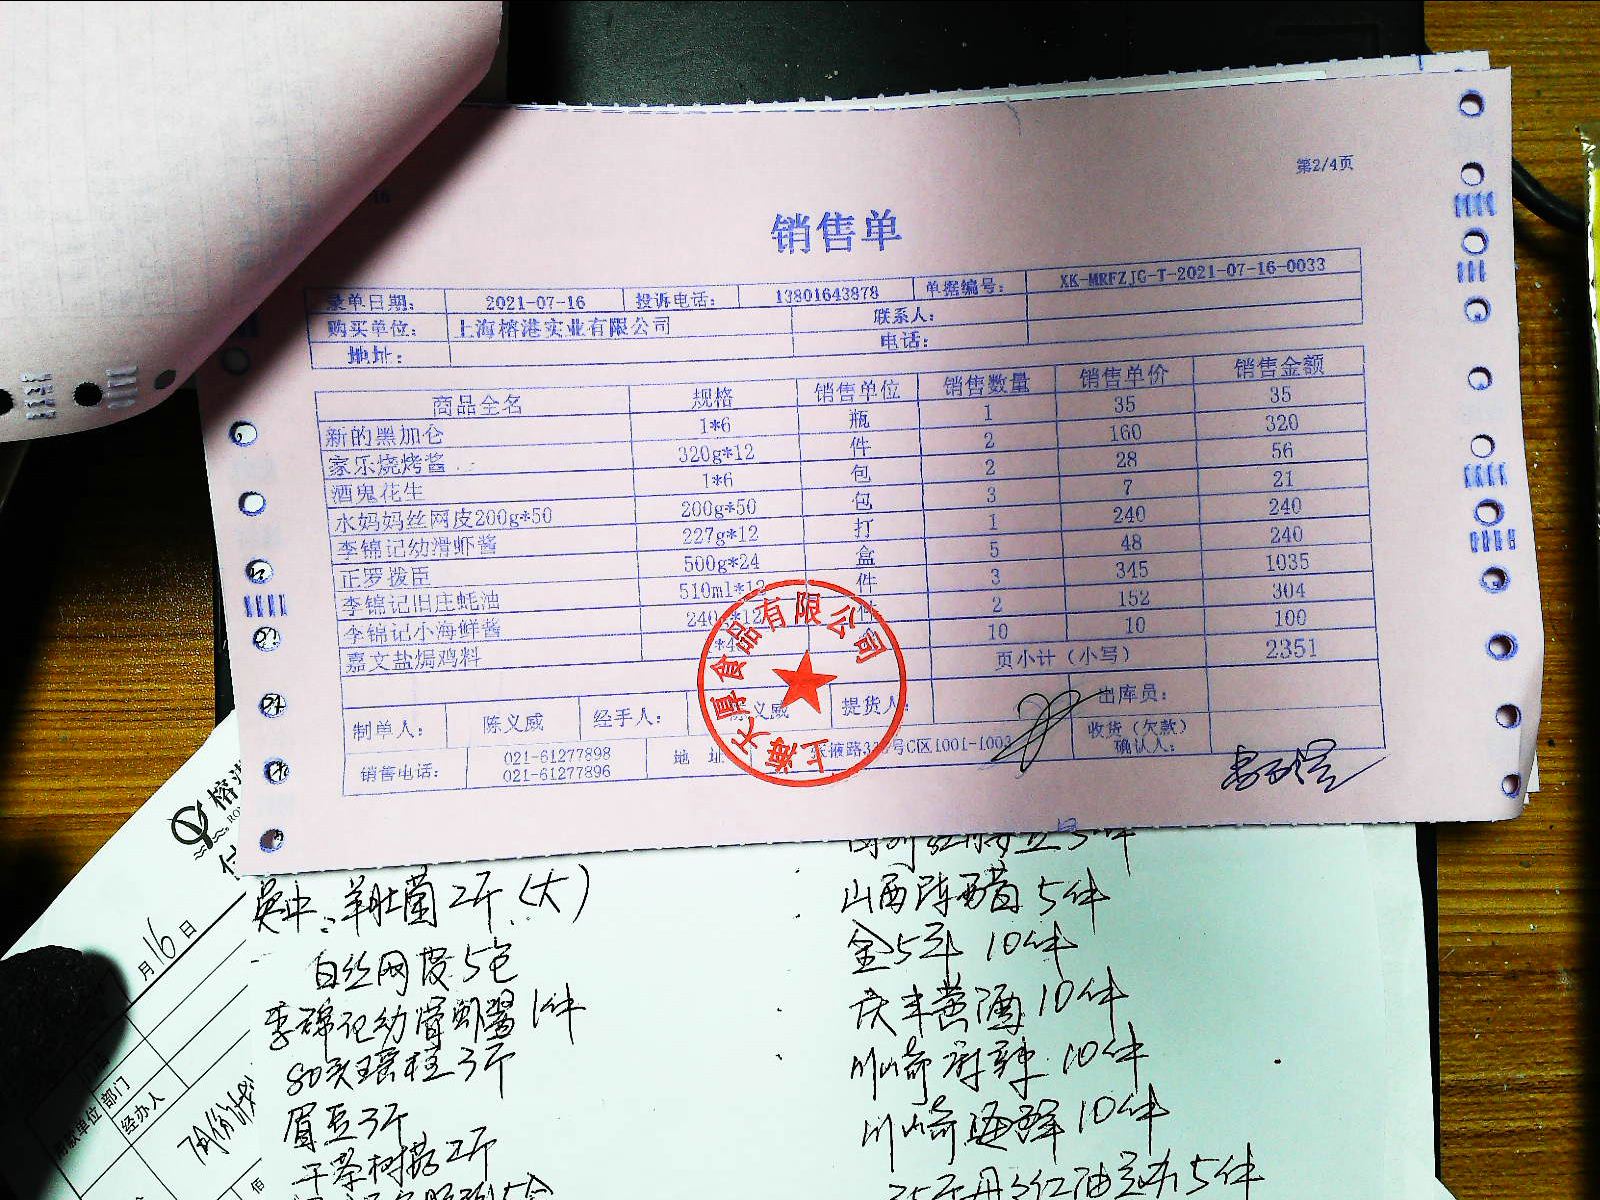 第2/4页
销售单
录单日期： 2021-07-16 投诉电话： 13801643878 单据编号： XK-MRFZJG-T-2021-07-16-0033
购买单位： 上海榕港实业有限公司 联系人：
地址： 电话：
商品全名 规格 销售单位 销售数量 销售单价 销售金额
新的黑加仑 1*6 瓶 1 35 35
家乐烧烤酱 320g*12 件 2 160 320
酒鬼花生 1*6 包 2 28 56
水妈妈丝网皮200g*50 200g*50 包 3 7 21
李锦记幼滑虾酱 227g*12 打 1 240 240
正罗拨臣 500g*24 盒 5 48 240
李锦记旧庄蚝油 510ml*12 件 3 345 1035
李锦记小海鲜酱 2 152 304
嘉文盐焗鸡料 10 10 100
页小计（小写） 2351
制单人： 陈义威 经手人： 陈义威 提货人： 出库员：
销售电话： 021-61277898 地址 C区1001-1003 收货（欠款）
021-61277896 确认人：
上海天厚食品有限公司
羊肚菌 2斤（大）
白丝网皮 5包
李锦记幼滑虾酱 1件
80头瑶柱 3斤
眉豆 3斤
山西陈醋 5件
10件
黄酒 10件
川崎 10件
川崎海鲜 10件
5件
月16日
部门
经办人